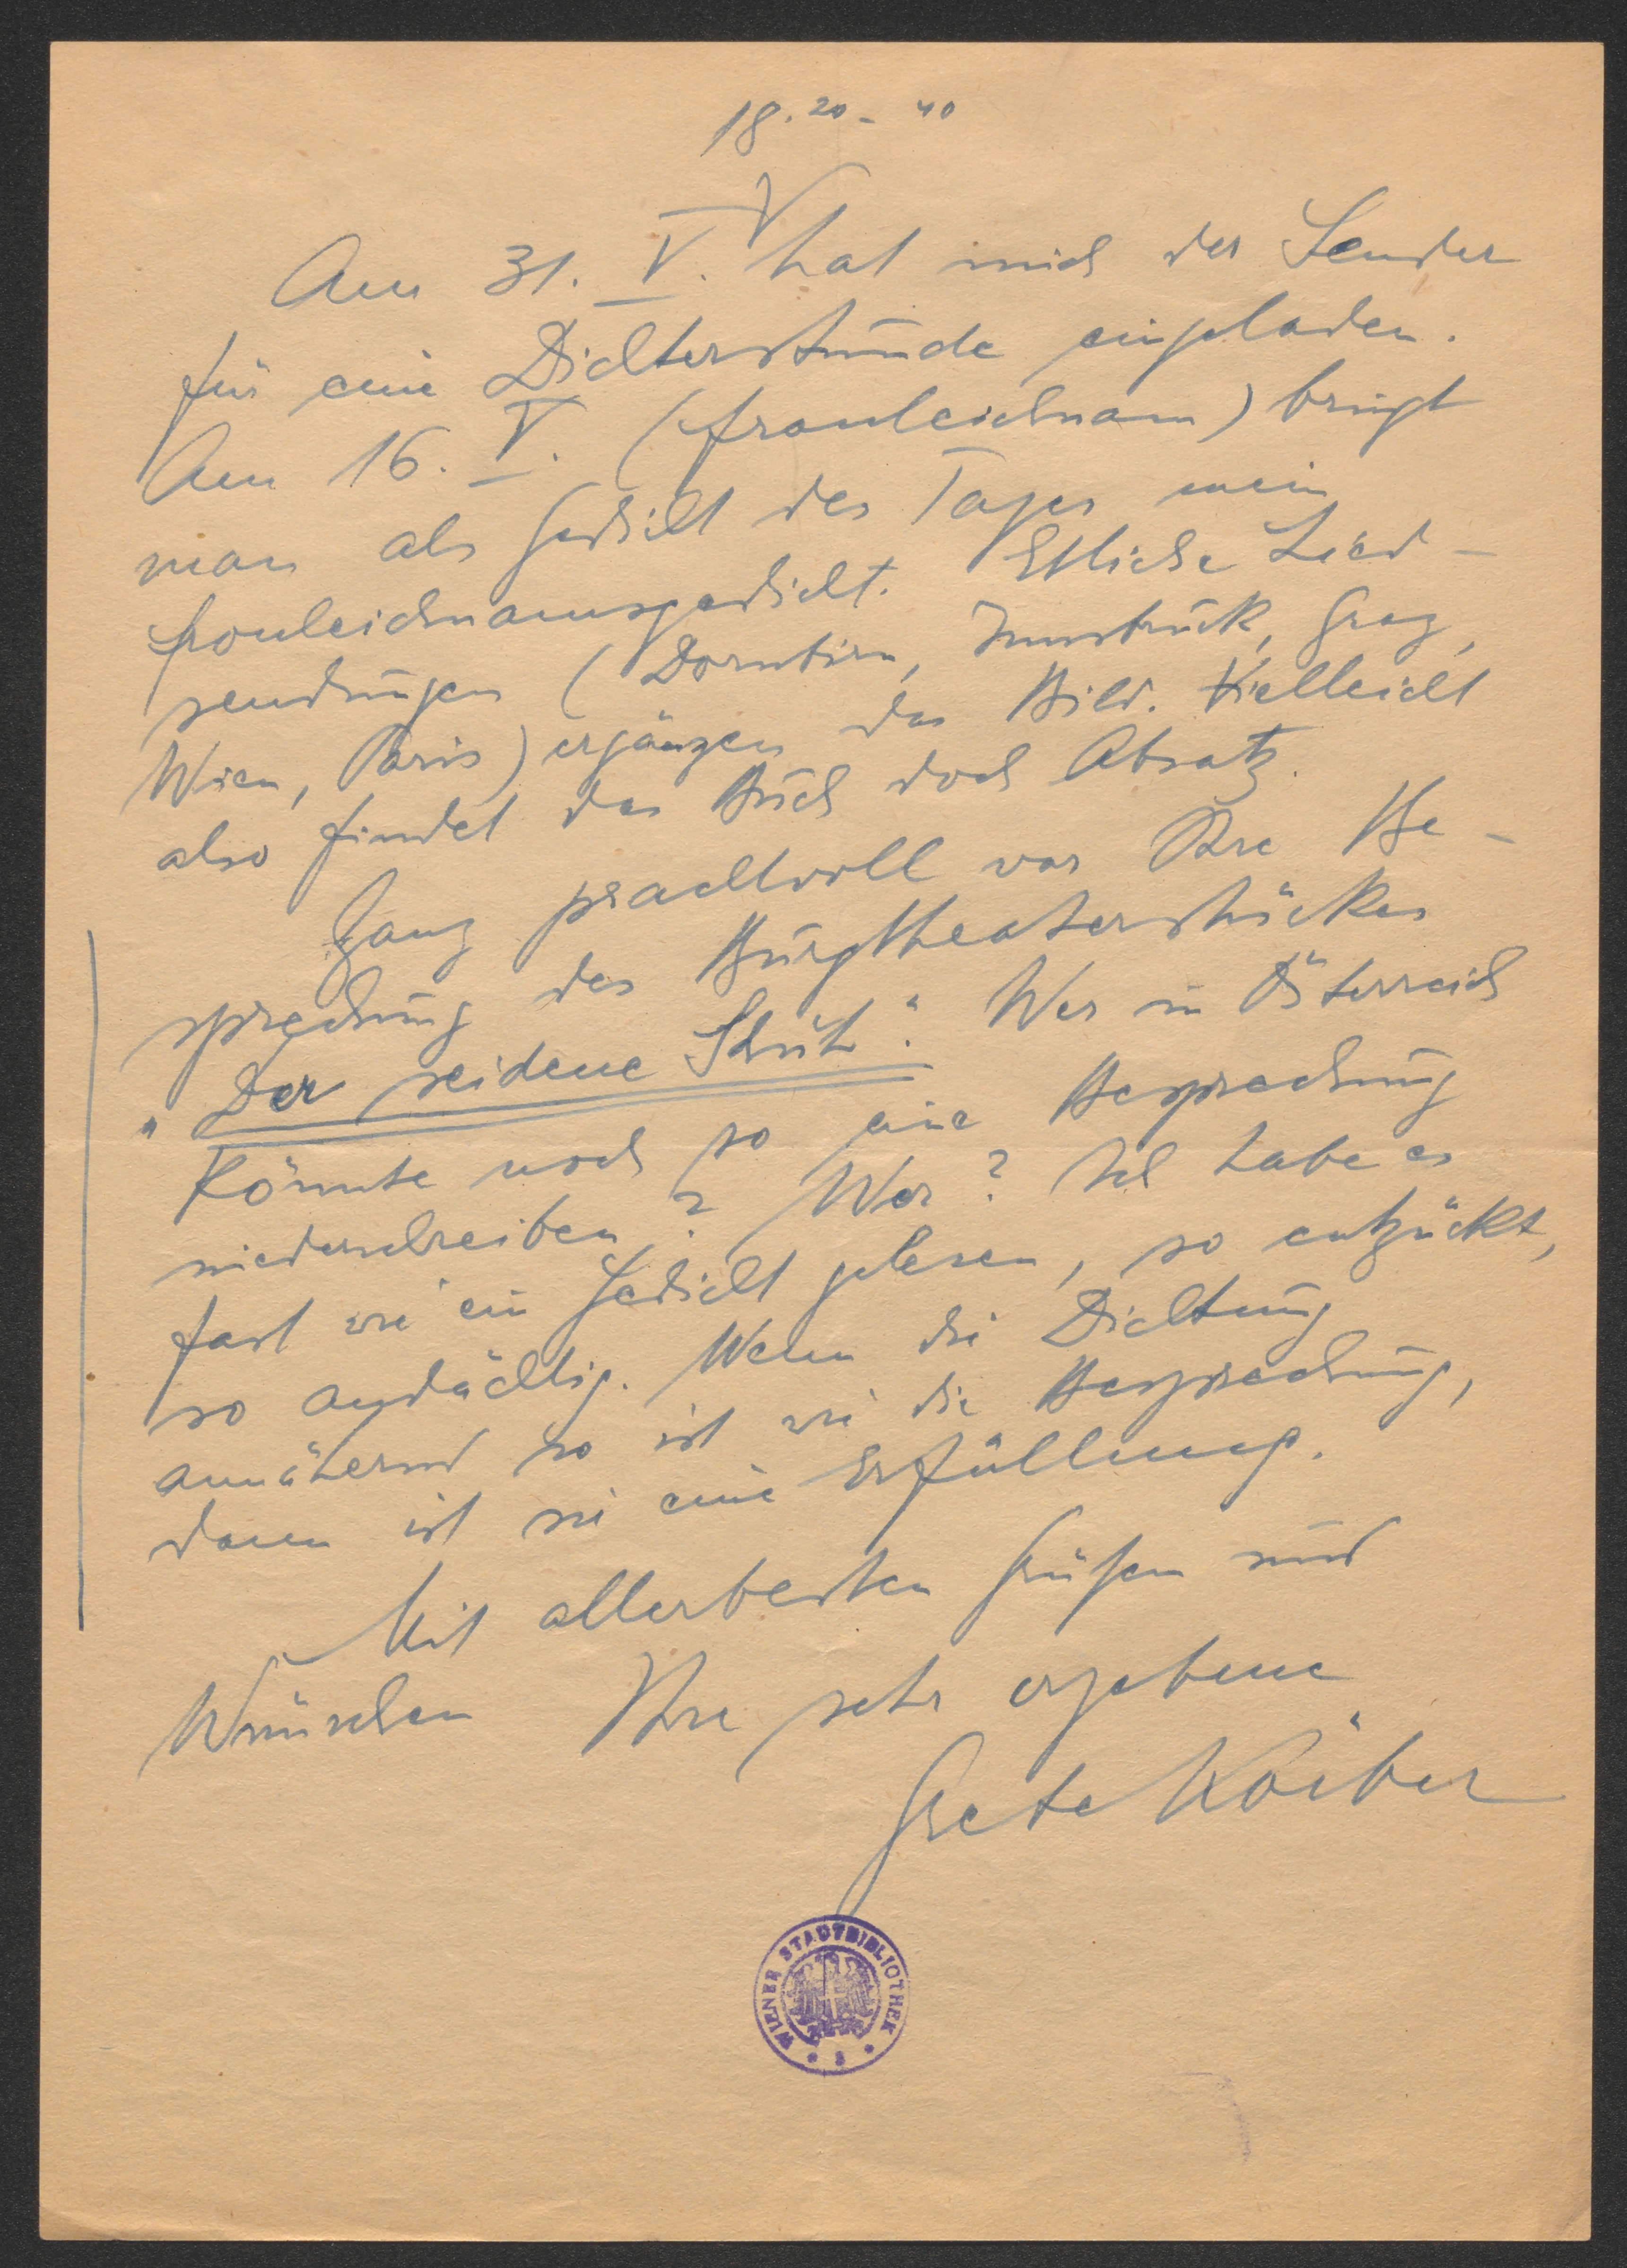 18.20 - 40
Am 31. V. hat mich der Sender
für eine Dichterstunde eingeladen.
Am 16. V. (Fronleichnam) bringt
man als Gedicht des Tages mein
Fronleichnamsgedicht. Etliche Lied-
sendungen (Dornbirn, Innsbruck, Graz,
Wien, Paris) ergänzen das Bild. Vielleicht
also findet das Buch doch Absatz.
Ganz prachtvoll war Ihre Be-
sprechung des Burgtheaterstückes
"Der seidene Schuh". Wer in Österreich
könnte noch so eine Besprechung
niederschreiben? Wer? Ich habe es
fast wie ein Gedicht gelesen, so entzückt,
so andächtig. Wenn die Dichtung
annähernd so ist wie die Besprechung,
dann ist sie eine Erfüllung.
Mit allerbesten Grüßen und
Wünschen Ihre sehr ergebene
Grete Körber
WIENER STADTBIBLIOTHEK